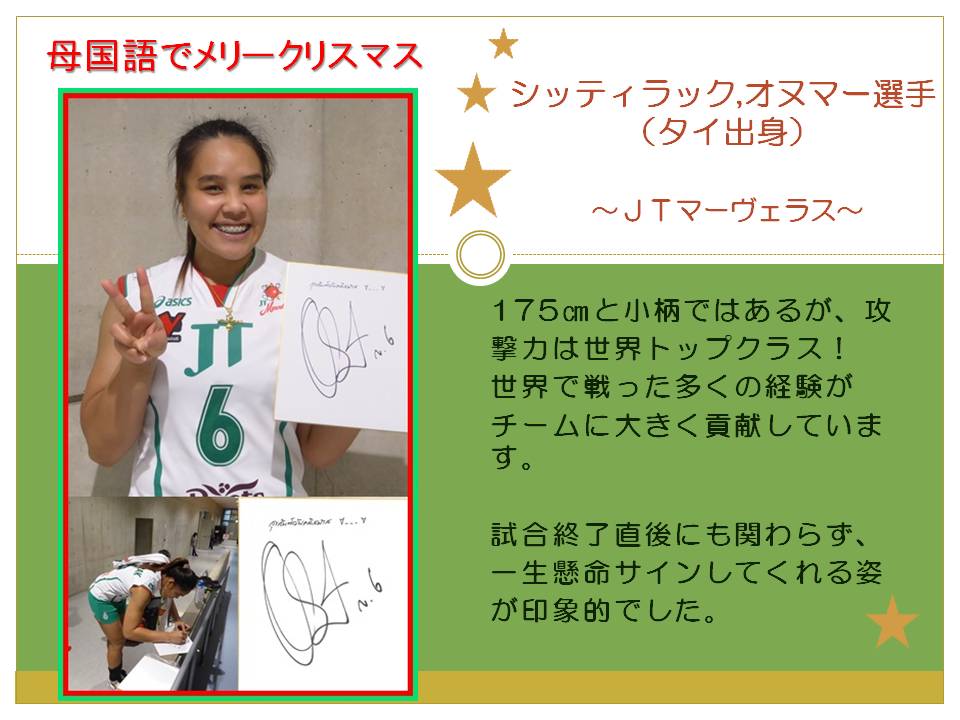 母国語でメリークリスマス
シッティラック,オヌマー選手
（タイ出身）
～ＪＴマーヴェラス～
175㎝と小柄ではあるが、攻
撃力は世界トップクラス！
世界で戦った多くの経験が
チームに大きく貢献していま
す。
試合終了直後にも関わらず、
一生懸命サインしてくれる姿
が印象的でした。
asics
JT
6